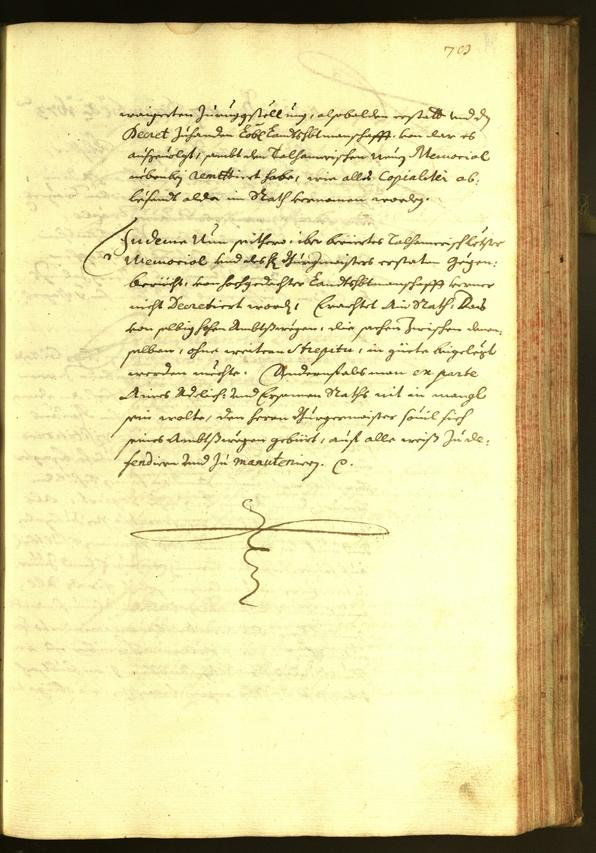 703
waigerten Zuruggstellung, alsobalden erstatt und dz
Decret Zuhanden Löbl: Landtshbtmanschafft, von dar es
außgevolgt, sambt dem Talhamerischen neuen Memorial
nebenbej remittiert habe, wie alles Copialiter ab-
lesendt alda in Rath vernomen worden.
Indeme Nun seithero, iber berierts Talhamerisch letstes
Memorial und des H: Burgermaisters erstaten Gegen-
bericht, von hochgedachter Landtshbtmanschafft verrner
nicht Decretiert worden, Erachtet Ain Rath, Das
von selbig hohen Ambtßwegen, die sachen zwischen denen-
selben, ohne weitern Strepitu, in güete hingelegt
werden mechte. Anderenfals man ex parte
Aines Adlich: Und Ersamen Raths nit in mangl
sein wolte, den Herrn Burgermaister sovil sich
seines Ambtßwegen gebürt, auf alle weiß Zu de-
fendirn Und Zu manuteniern. &c.